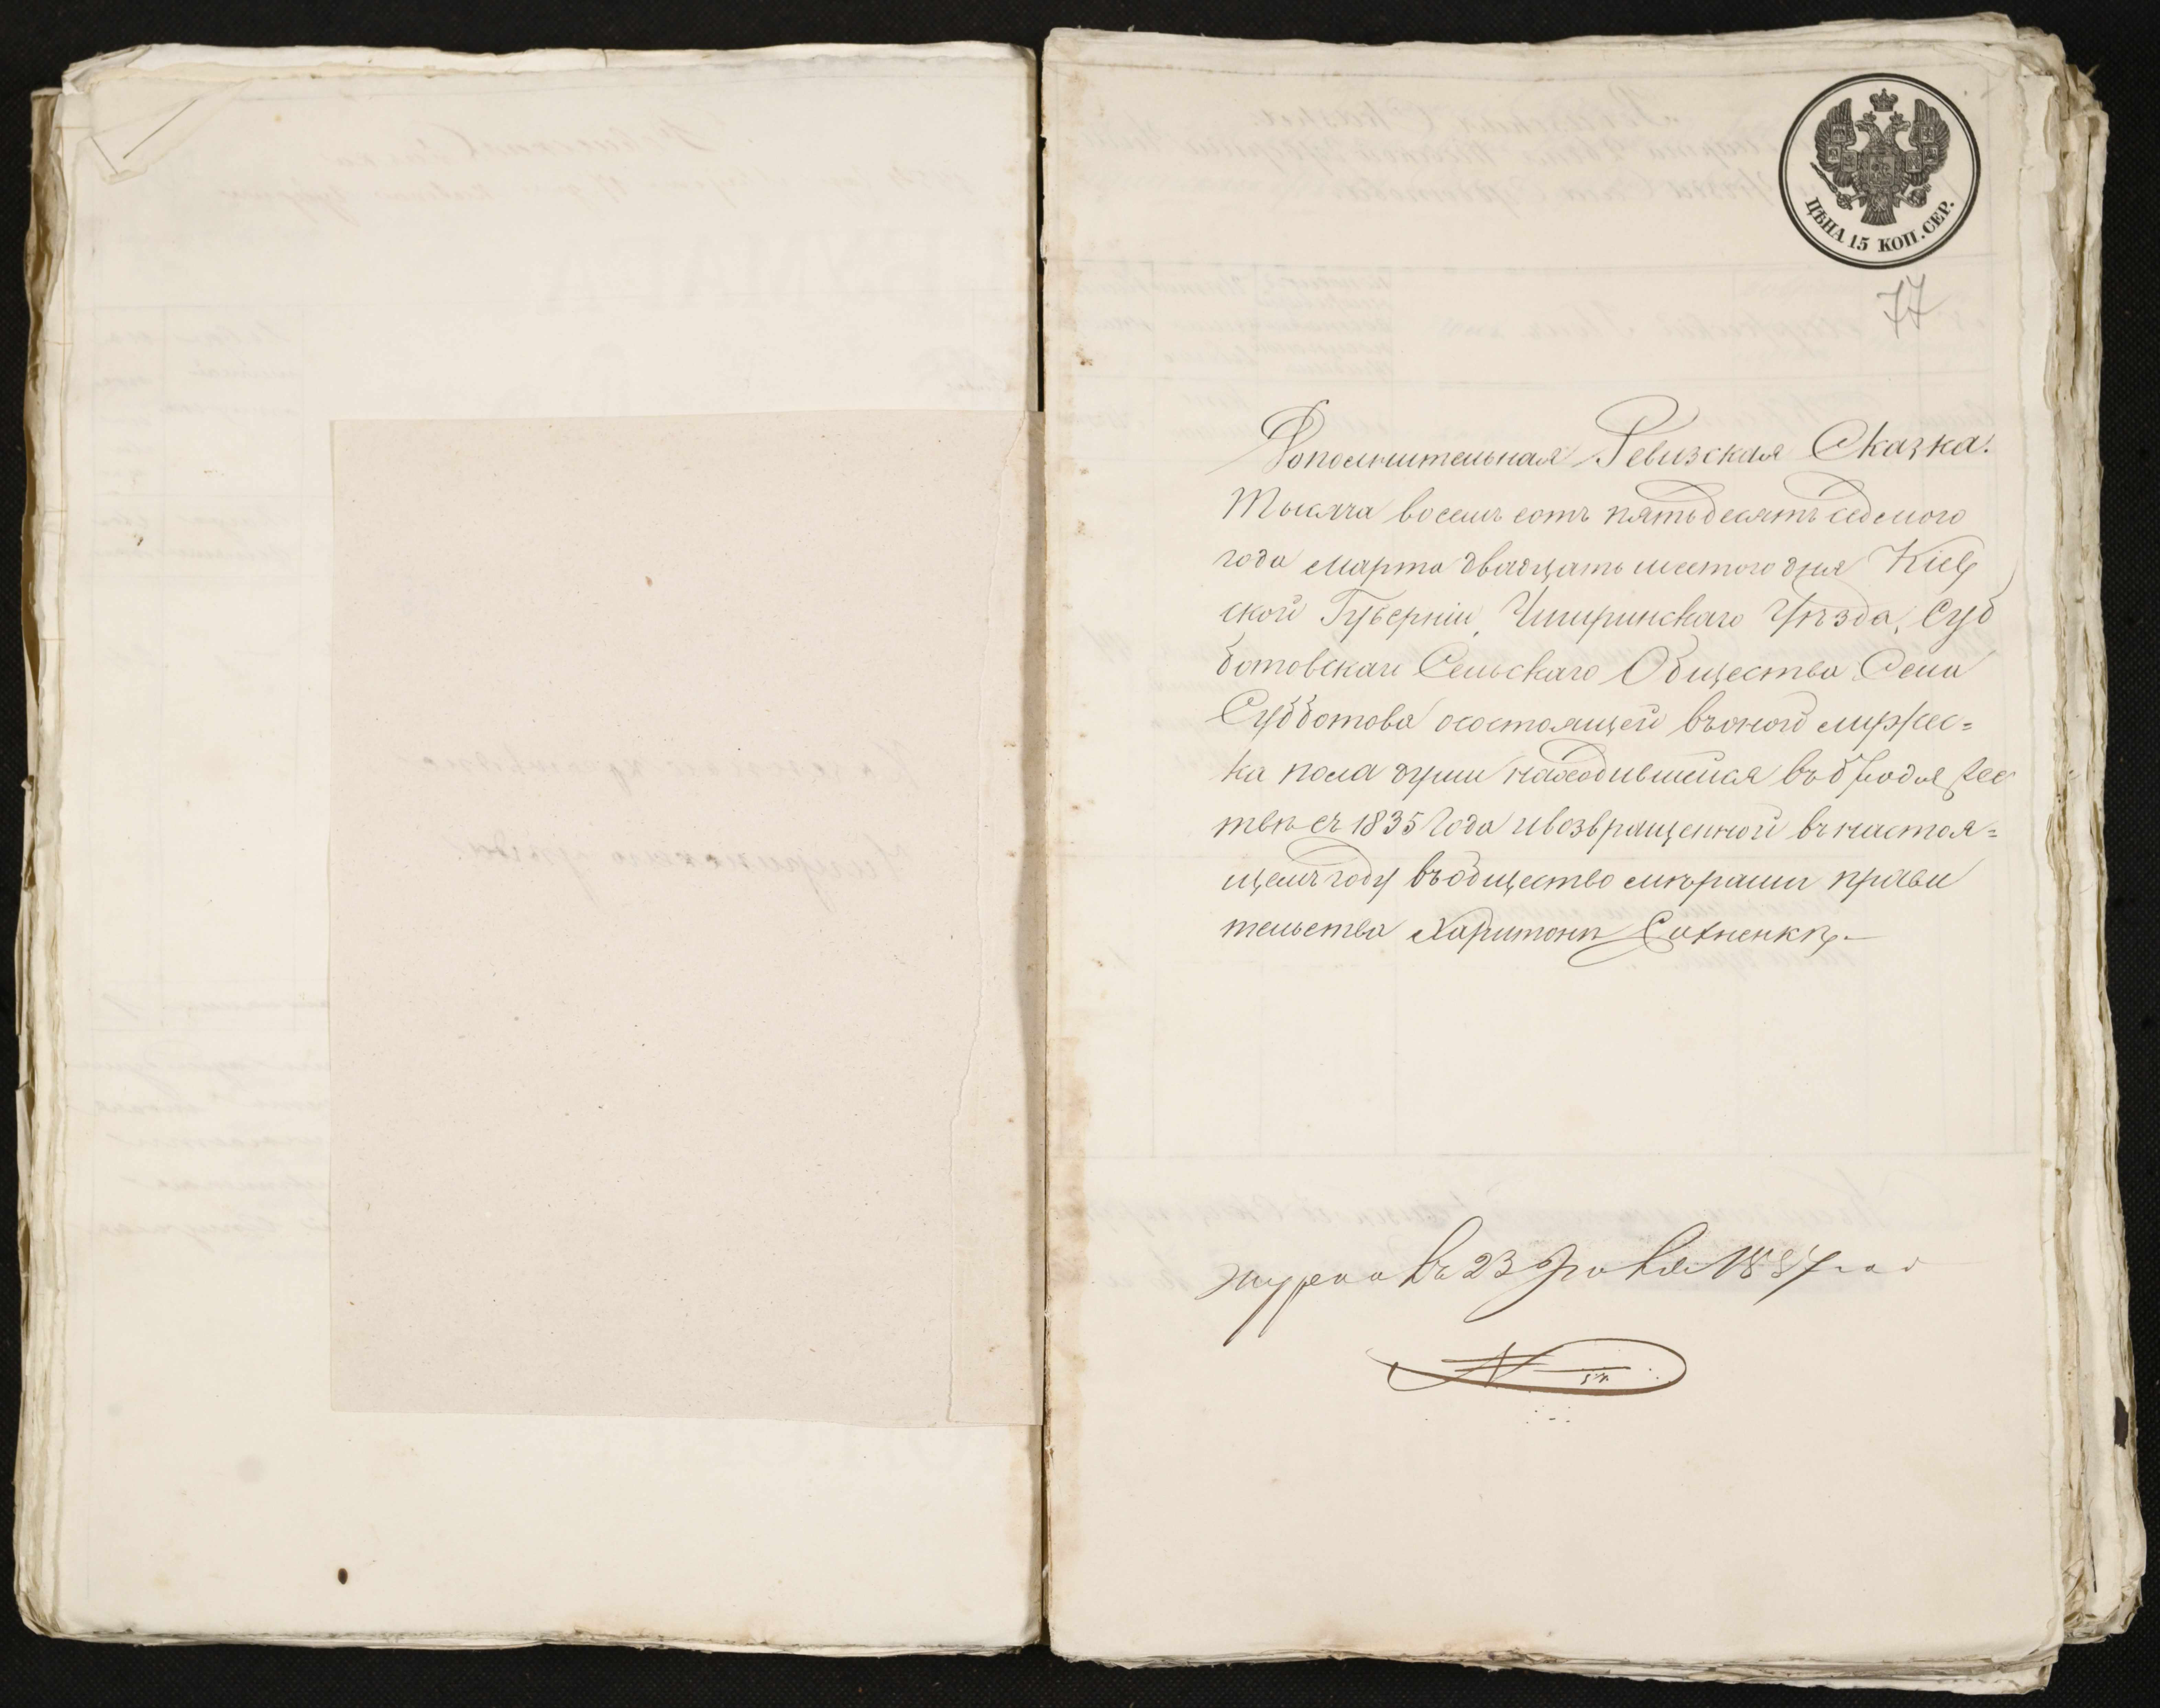 ЦѢНА 15 КОП. СЕР.
77
Дополнительная Ревизская Сказка.
Тысяча восемь сотъ пятьдесятъ седмого
года марта двадцать шестого дня Кіев
ской Губерніи, Чигиринскаго Уѣзда, Суб
ботовскаго Сельскаго Общества Села
Субботова осостоящей въоной мужес=
ка пола души находившейся въбродяжес
твѣ съ 1835 года ивозвращенной въ настоя=
щемъ году въобщество мѣрами прави
тельства Харитонѣ Сахненкѣ.
23 1857